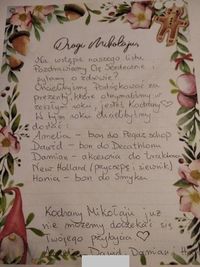 Drogi Mikołaju,
Na wstępie naszego listu
Pozdrawiamy Cię Serdecznie i
pytamy o zdrowie?
Chcielibyśmy Podziękować za
prezenty które otrzymaliśmy w
zeszłym roku, jesteś Kochany ♡
W tym roku chcielibyśmy
dostać:
Amelia - bon do Pepco shop
Dawid - bon do Decathlonu
Damian - akcesoria do traktora
New Holland (przyczepa i siewnik)
Hania - bon do Smyka
Kochany Mikołaju już
nie możemy doczekać się
Twojego przybycia ♡
Dawid Damian H